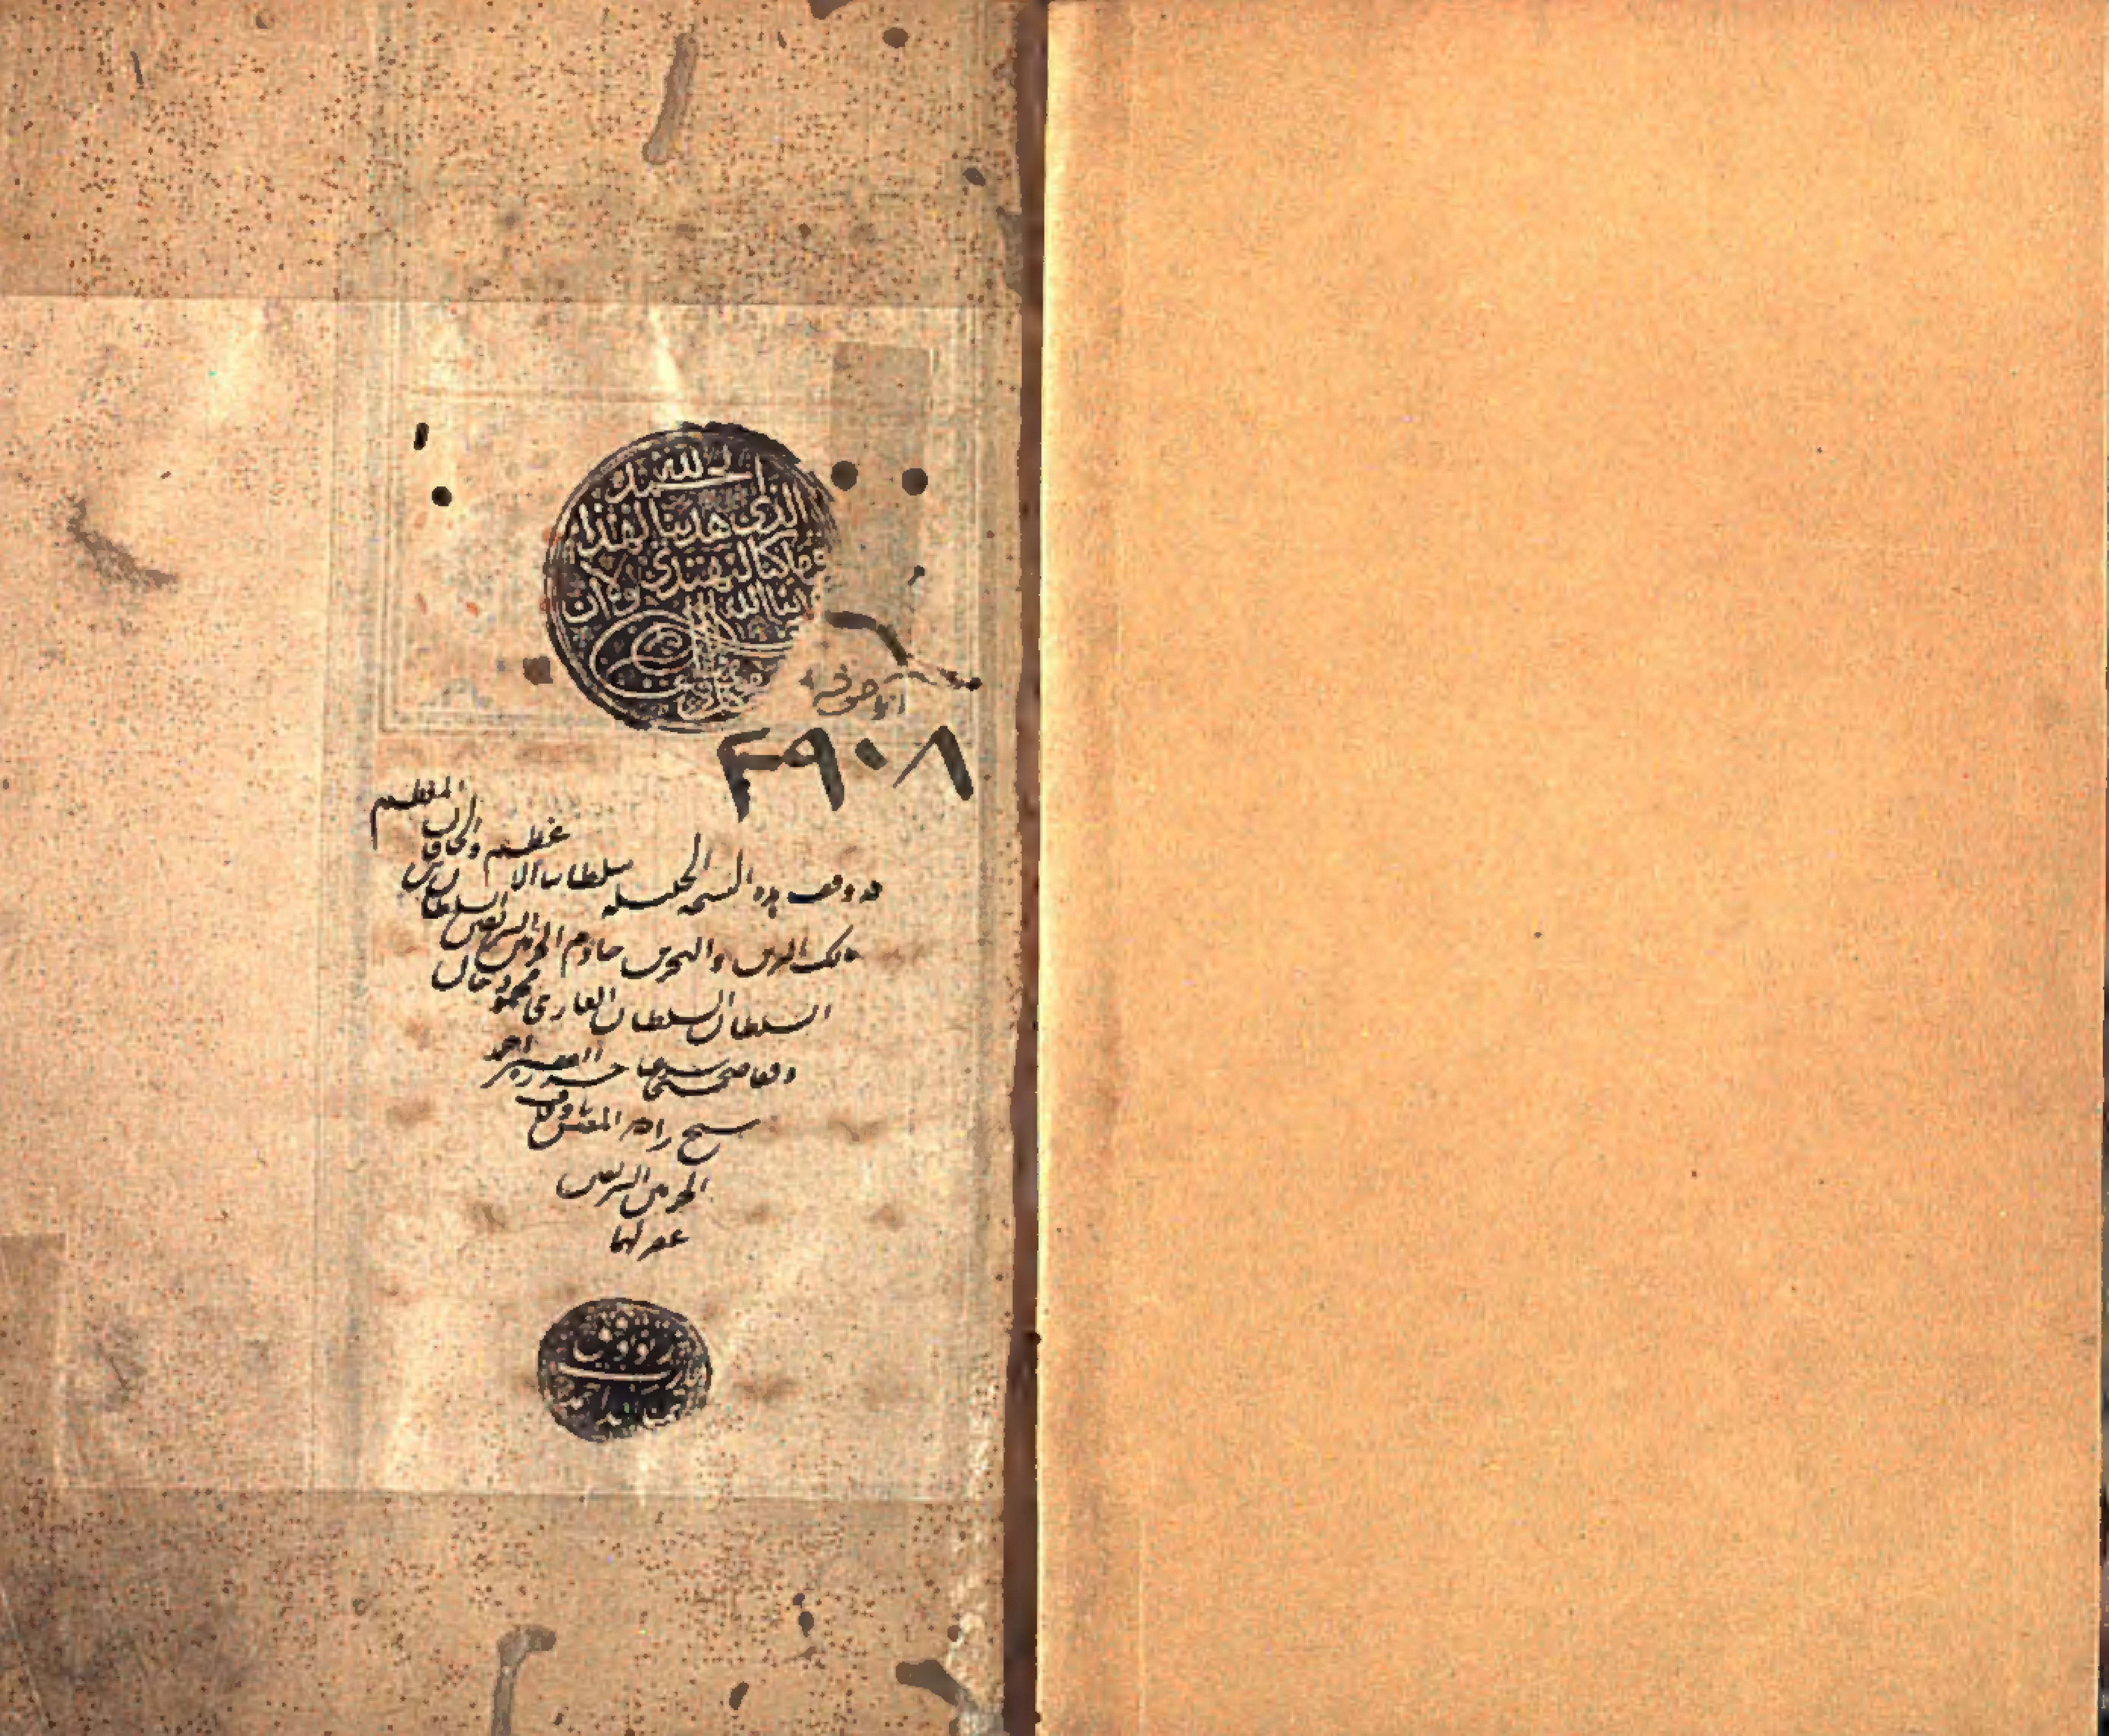 الحمد لله
الذى هدينا لهذا
وماكنا لنهتدى لولا ان
هدينا الله
اياصوفيه
٣٩٠٨
قد وقف هذه النسخه الجليله سلطاننا الاعظم والخاقان المعظم
مالك البرين والبحرين خادم الحرمين الشريفين السلطان بن
السلطان السلطان الغازى محمود خان
وقفا صحيحا شرعيا حرره الفقير احمد
شيخ زاده المفتش باوقاف
الحرمين الشريفين
غفر لهما